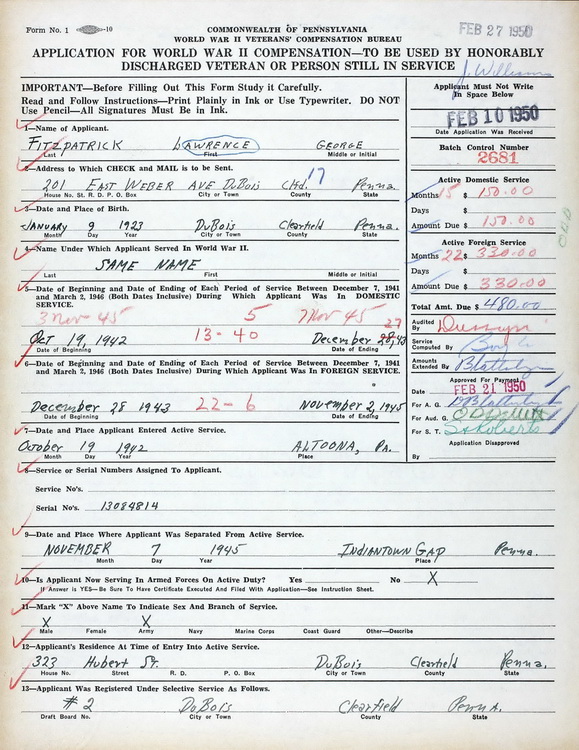 Form No. 1 -10
COMMONWEALTH OF PENNSYLVANIA
FEB 27 1950
WORLD WAR II VETERANS' COMPENSATION BUREAU
APPLICATION FOR WORLD WAR II COMPENSATION—TO BE USED BY HONORABLY
DISCHARGED VETERAN OR PERSON STILL IN SERVICE
J. Williams
IMPORTANT—Before Filling Out This Form Study it Carefully.
Read and Follow Instructions—Print Plainly in Ink or Use Typewriter. DO NOT
Use Pencil—All Signatures Must Be in Ink.
Applicant Must Not Write
In Space Below
FEB 10 1950
Date Application Was Received
Batch Control Number
2681
1—Name of Applicant.
FITZPATRICK LAWRENCE GEORGE
Last First Middle or Initial
2—Address to Which CHECK and MAIL is to be Sent.
201 EAST WEBER AVE DUBOIS Clfd. 17 Penna.
House No. St. R.D. P.O. Box City or Town County State
3—Date and Place of Birth.
JANUARY 9 1923 DuBois Clearfield Penna.
Month Day Year City or Town County State
4—Name Under Which Applicant Served In World War II.
SAME NAME
Last First Middle or Initial
5—Date of Beginning and Ending of Each Period of Service Between December 7, 1941
and March 2, 1946 (Both Dates Inclusive) During Which Applicant Was In DOMESTIC
SERVICE.
3 Nov 45 5 7 Nov 45
27
Oct 19, 1942 13-40 December 28, 43
Date of Beginning Date of Ending
6—Date of Beginning and Ending of Each Period of Service Between December 7, 1941
and March 2, 1946 (Both Dates Inclusive) During Which Applicant Was In FOREIGN SERVICE.
December 28 1943 22-6 November 2, 1945
Date of Beginning Date of Ending
7—Date and Place Applicant Entered Active Service.
October 19 1942 ALTOONA, PA.
Month Day Year Place
Active Domestic Service
Months 15 $ 150.00
Days $
Amount Due $ 150.00
Active Foreign Service
Months 22 $ 330.00
Days $
Amount Due $ 330.00
Total Amt. Due $ 480.00
Audited
By
Service
Computed By
Amounts
Extended By
Approved For Payment
Date FEB 21 1950
For A. G.
For Aud. G.
For S. T. Roberts
Application Disapproved
By
8—Service or Serial Numbers Assigned To Applicant.
Service No's.
Serial No's. 13084814
9—Date and Place Where Applicant Was Separated From Active Service.
NOVEMBER 7 1945 INDIANTOWN GAP Penna.
Month Day Year Place
10—Is Applicant Now Serving In Armed Forces On Active Duty? Yes No X
If Answer is YES—Be Sure To Have Certificate Executed And Filed With Application—See Instruction Sheet.
11—Mark "X" Above Name To Indicate Sex and Branch of Service.
X X
Male Female Army Navy Marine Corps Coast Guard Other—Describe
12—Applicant's Residence At Time of Entry Into Active Service.
323 Hubert St. DuBois Clearfield Penna.
House No. Street R. D. P. O. Box City or Town County State
13—Applicant Was Registered Under Selective Service As Follows.
# 2 DuBois Clearfield PennA.
Draft Board No. City or Town County State